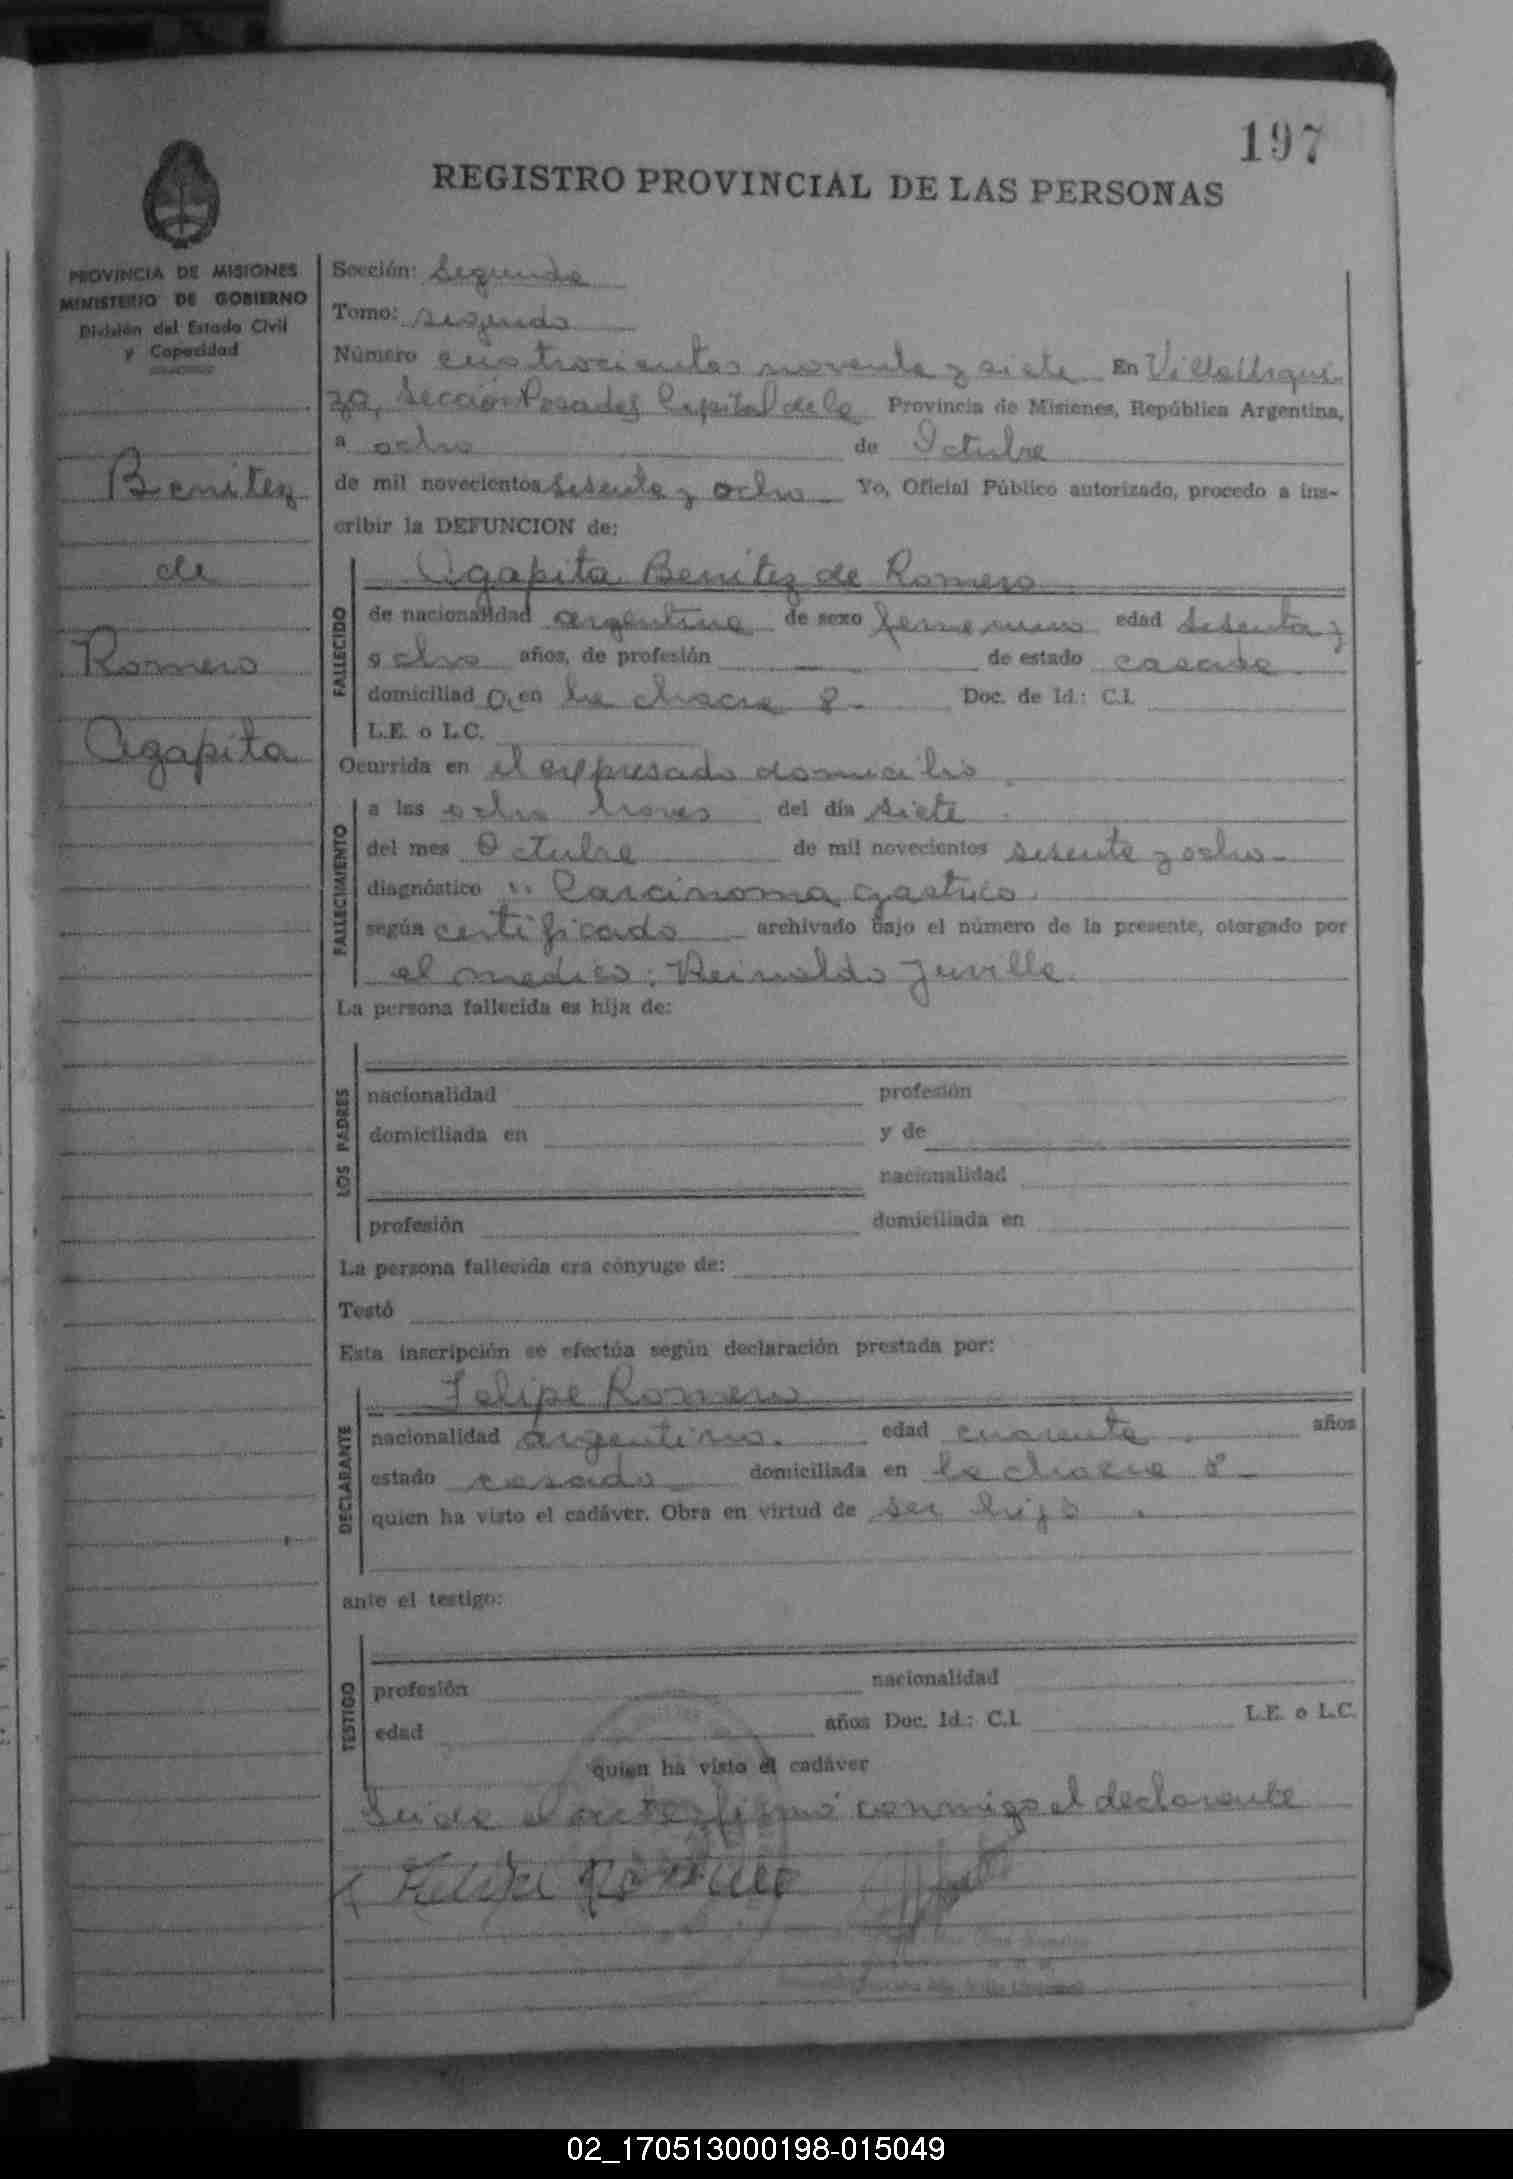 197
REGISTRO PROVINCIAL DE LAS PERSONAS
PROVINCIA DE MISIONES
MINISTERIO DE GOBIERNO
División del Estado Civil
y Capacidad
Benitez
de
Romero
Agapita
Sección: Segunda
Tomo: segundo
Número cuatrocientos noventa y siete En Villa Urqui-
za, Sección Posadas Capital de la Provincia de Misiones, República Argentina,
a ocho de Octubre
de mil novecientos sesenta y ocho Yo, Oficial Público autorizado, procedo a ins-
cribir la DEFUNCION de:
FALLECIDO
Agapita Benitez de Romero
de nacionalidad argentina de sexo femenino edad sesenta y
ocho años, de profesión de estado casada
domiciliad a en la chacra 8 Doc. de Id.: C.I.
L.E. o L.C.
Ocurrida en el expresado domicilio
FALLECIMIENTO
a las ocho horas del día siete
del mes Octubre de mil novecientos sesenta y ocho
diagnóstico Carcinoma gastrico
según certificado archivado bajo el número de la presente, otorgado por
el medico: Reinaldo
La persona fallecida es hija de:
LOS PADRES
nacionalidad profesión
domiciliada en y de
nacionalidad
profesión domiciliada en
La persona fallecida era cónyuge de:
Testó
Esta inscripción se efectúa según declaración prestada por:
DECLARANTE
Felipe Romero
nacionalidad argentino edad cuarenta años
estado casado domiciliada en la chacra 8
quien ha visto el cadáver. Obra en virtud de ser hijo
ante el testigo:
TESTIGO
profesión nacionalidad
edad años Doc. Id.: C.I. L.E. o L.C.
quien ha visto el cadáver
Leida el acta firmó conmigo el declarante
Felipe Romero
02_170513000198-015049